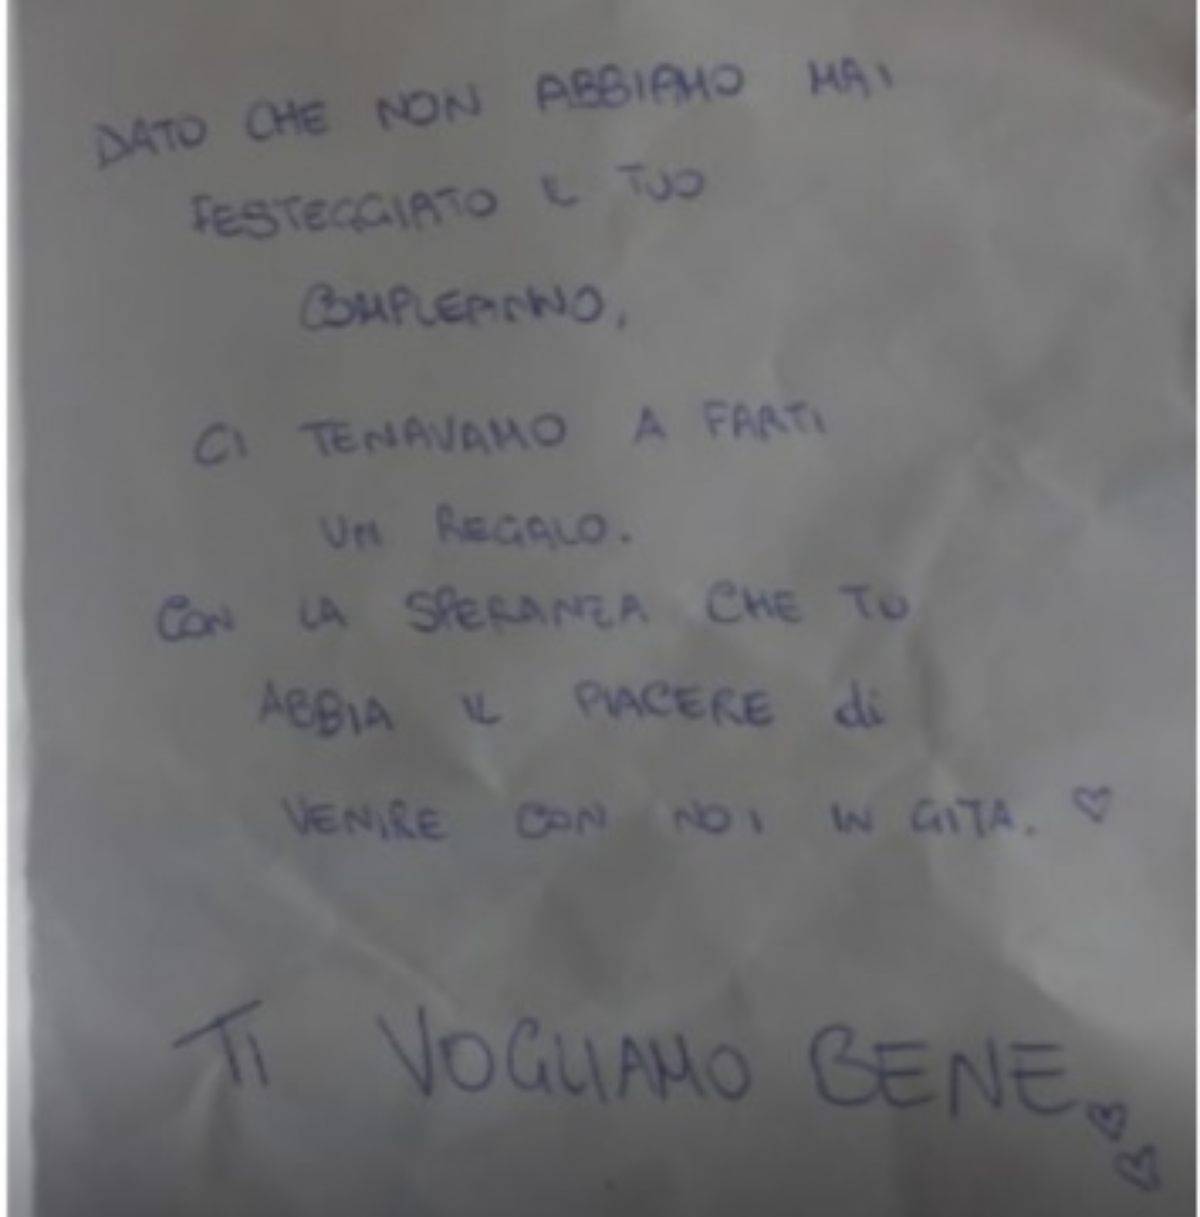 DATO CHE NON ABBIAMO MAI
FESTEGGIATO IL TUO
COMPLEANNO,
CI TENAVAMO A FARTI
UN REGALO.
CON LA SPERANZA CHE TU
ABBIA IL PIACERE di
VENIRE CON NOI IN GITA. ♡
TI VOGLIAMO BENE ♡♡